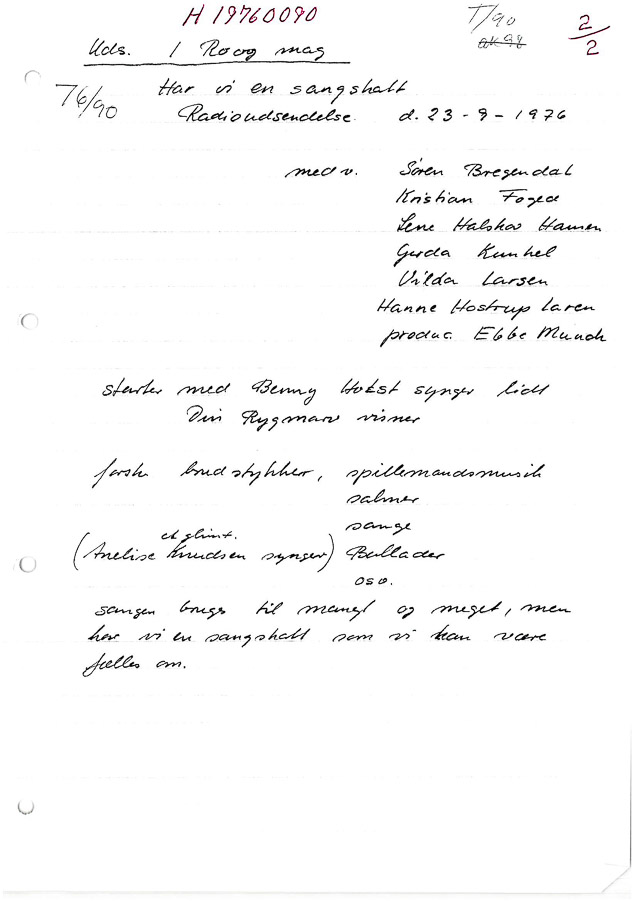 H 19760090
T/90
2/2
Uds. I Ro og mag
76/90
Har vi en sangskatt
Radioudsendelse. d. 23-9-1976
med v. Søren Bregendal
Kristian Foged
Lene Halskov Hansen
Gerda Kunkel
Vilda Larsen
Hanne Hostrup Larsen
produc. Ebbe Munch
starter med Benny Holst synger lidt
Din Rygmarv visner
forsk. brudstykker, spillemandsmusik
salmer
sange
et glimt.
(Anelise Knudsen synger) Ballader
osv.
sangen bruges til mangt og meget, men
har vi en sangskatt som vi kan være
fælles om.